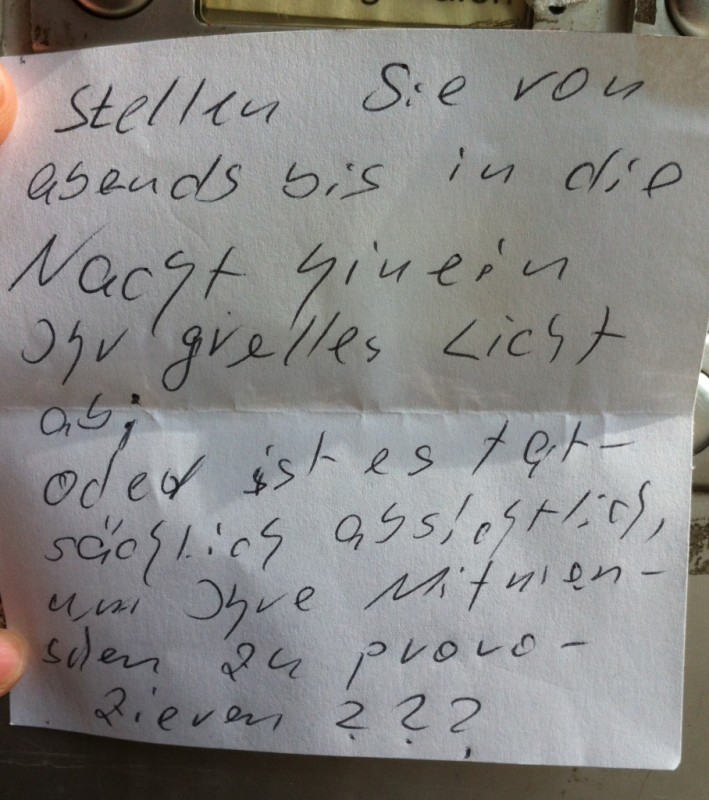 Stellen Sie von
abends bis in die
Nacht hinein
Ihr grelles Licht
ab;
oder ist es tat-
sächlich absichtlich,
um Ihre Mitmen-
schen zu provo-
zieren ???